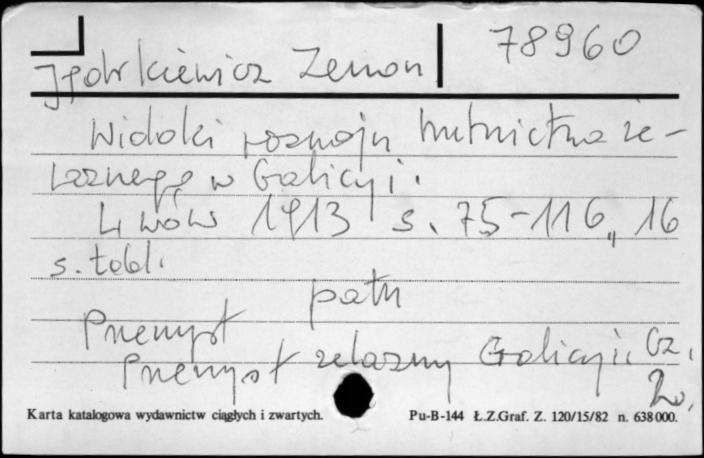 78960
Zenon
Widoki rozwoju hutnictwa że-
laznego w Galicyi.
Lwów 1913 s. 75-116, 16
s. tabl.
patrz
Przemysł
Przemysł żelazny Galicyi. Cz.
2.
Karta katalogowa wydawnictw ciągłych i zwartych.
Pu-B-144 Ł.Z.Graf. Z. 120/15/82 n. 638000.